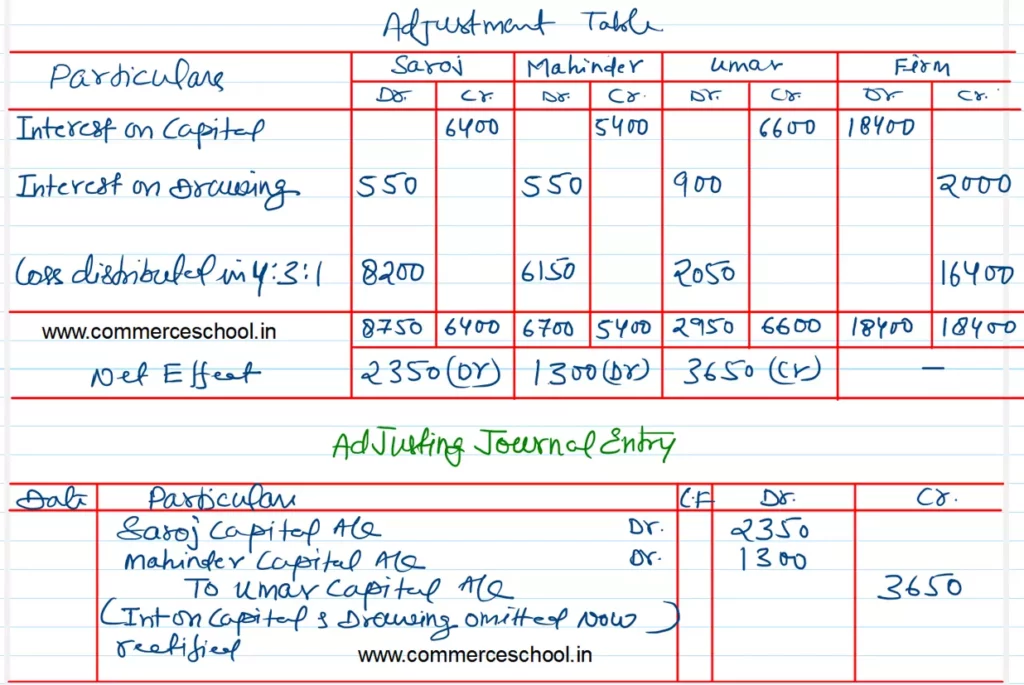 Adjustment Table
Particulars Saroj Mahinder Umar Firm
Dr. Cr. Dr. Cr. Dr. Cr. Dr. Cr.
Interest on Capital 6400 5400 6600 18400
Interest on Drawing 550 550 900 2000
Loss distributed in 4:3:1 8200 6150 2050 16400
www.commerceschool.in 8750 6400 6700 5400 2950 6600 18400 18400
Net Effect 2350 (Dr) 1300 (Dr) 3650 (Cr) —
Adjusting Journal Entry
Date Particulars L.F Dr. Cr.
Saroj Capital A/C Dr. 2350
Mahinder Capital A/C Dr. 1300
To Umar Capital A/C 3650
(Int on Capital & Drawing omitted Now)
rectified
www.commerceschool.in